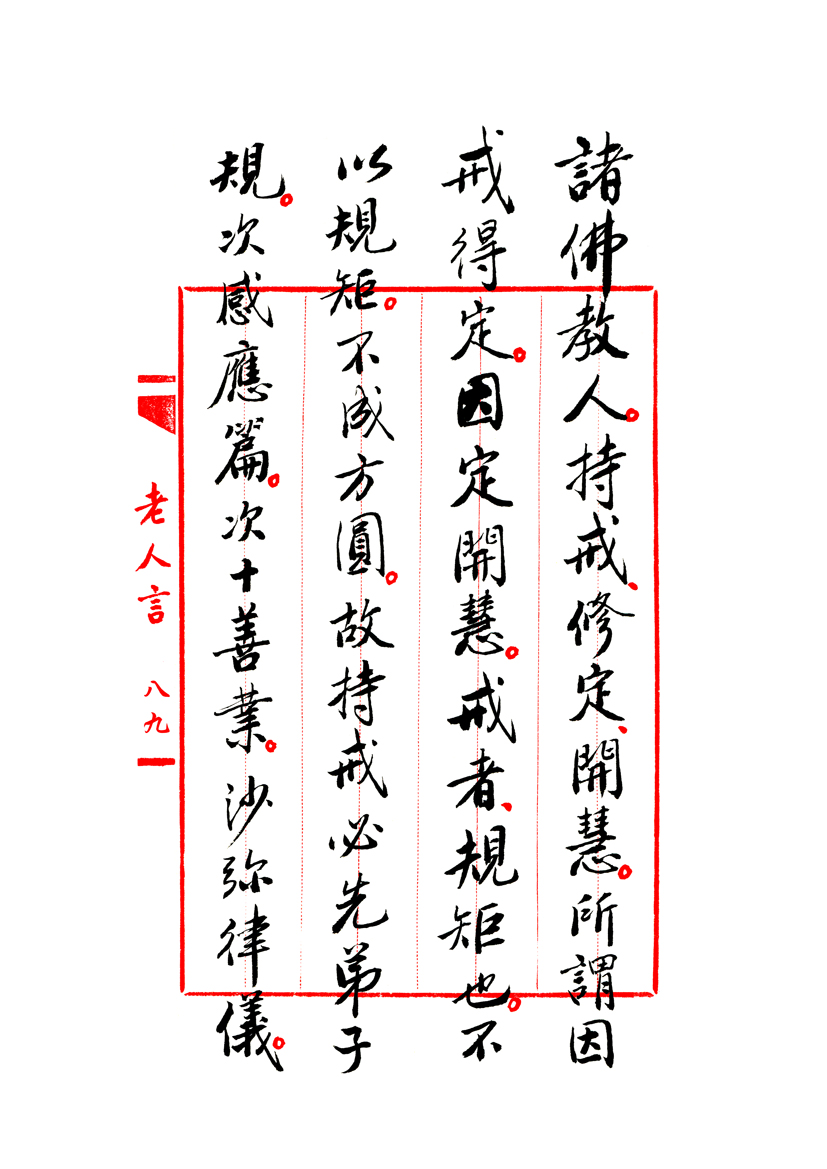 諸佛教人。持戒、修定、開慧。所謂因
戒得定。因定開慧。戒者、規矩也。不
以規矩。不成方圓。故持戒必先弟子
規。次感應篇。次十善業。沙弥律儀。
老人言 八九